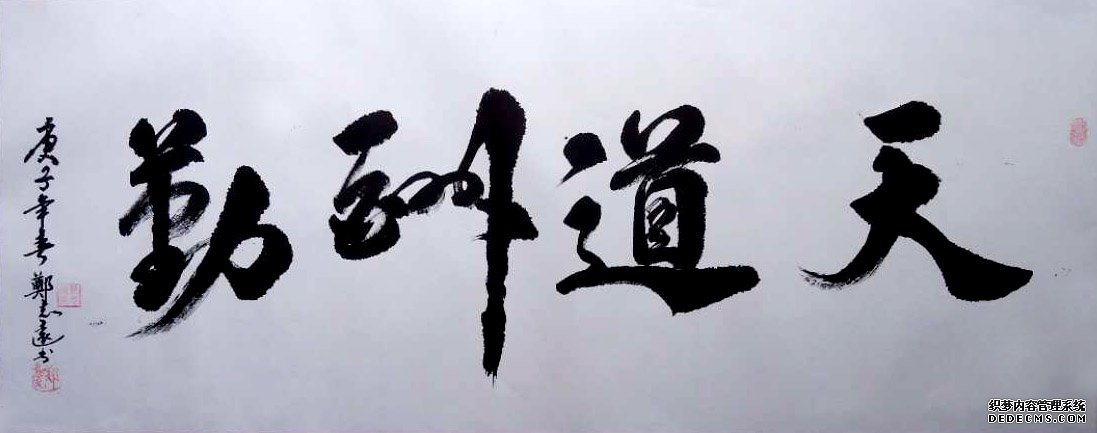 天道酬勤
庚子年春 鄭志遠书
织梦内容管理系统
DEDECMS.COM